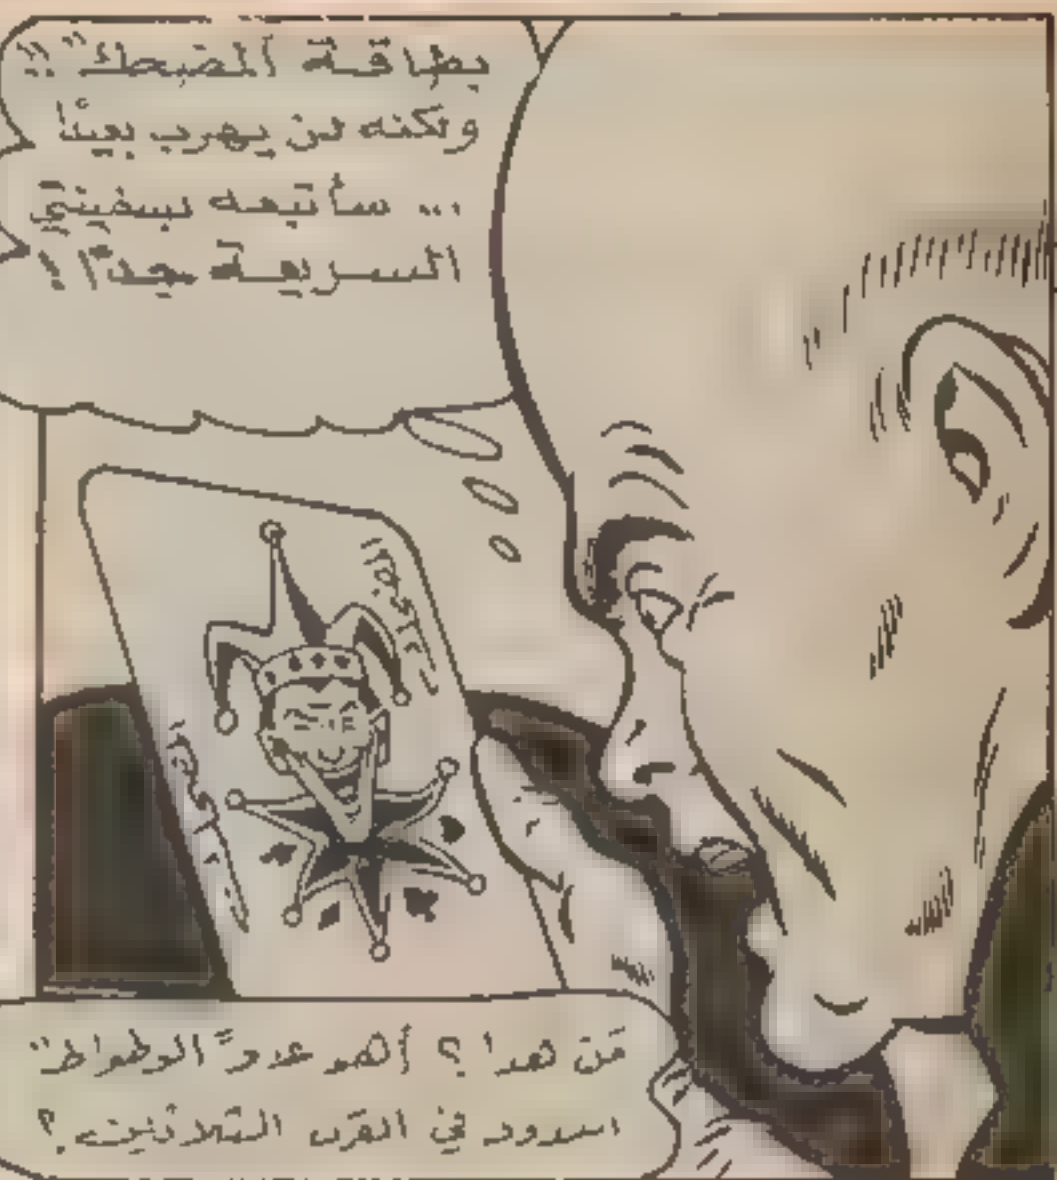 بطاقة "المضحك" !!
ولكنه لن يهرب بعيدًا
... سأتبعه بسفينتي
السريعة جدًا !
مَن هذا ؟ أهو عدوّ "الوطواط"
في القرن الثلاثين ؟